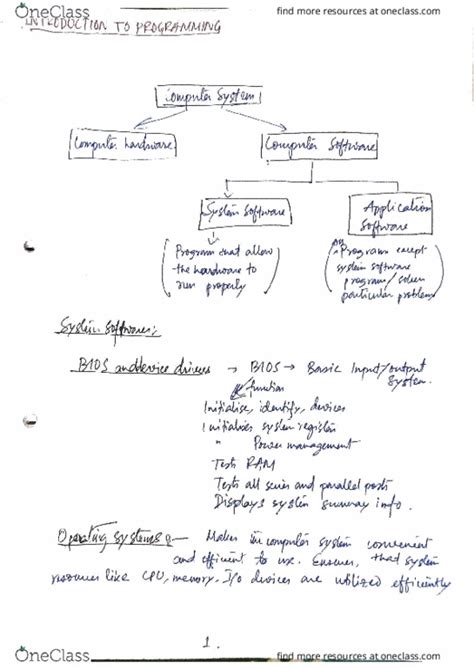 OneClass
find more resources at oneclass.com
INTRODUCTION TO PROGRAMMING
Computer System
Computer hardware
Computer Software
System Software
Application
Software
Program that allow
the hardware to
run properly
Any
Program except
system software
program/solven
particular problems
System softwares:
BIOS and device drivers → BIOS → Basic Input/output
System.
function
Initialise, identify, devices
Initialises system register
" Power management
Tests RAM
Tests all series and parallel posts
Displays system summary info.
Operating systems :- Makes the computer system convenient
and efficient to use. Ensures, that system
resources like CPU, memory, I/O devices are utilized efficiently
1.
OneClass
find more resources at oneclass.com